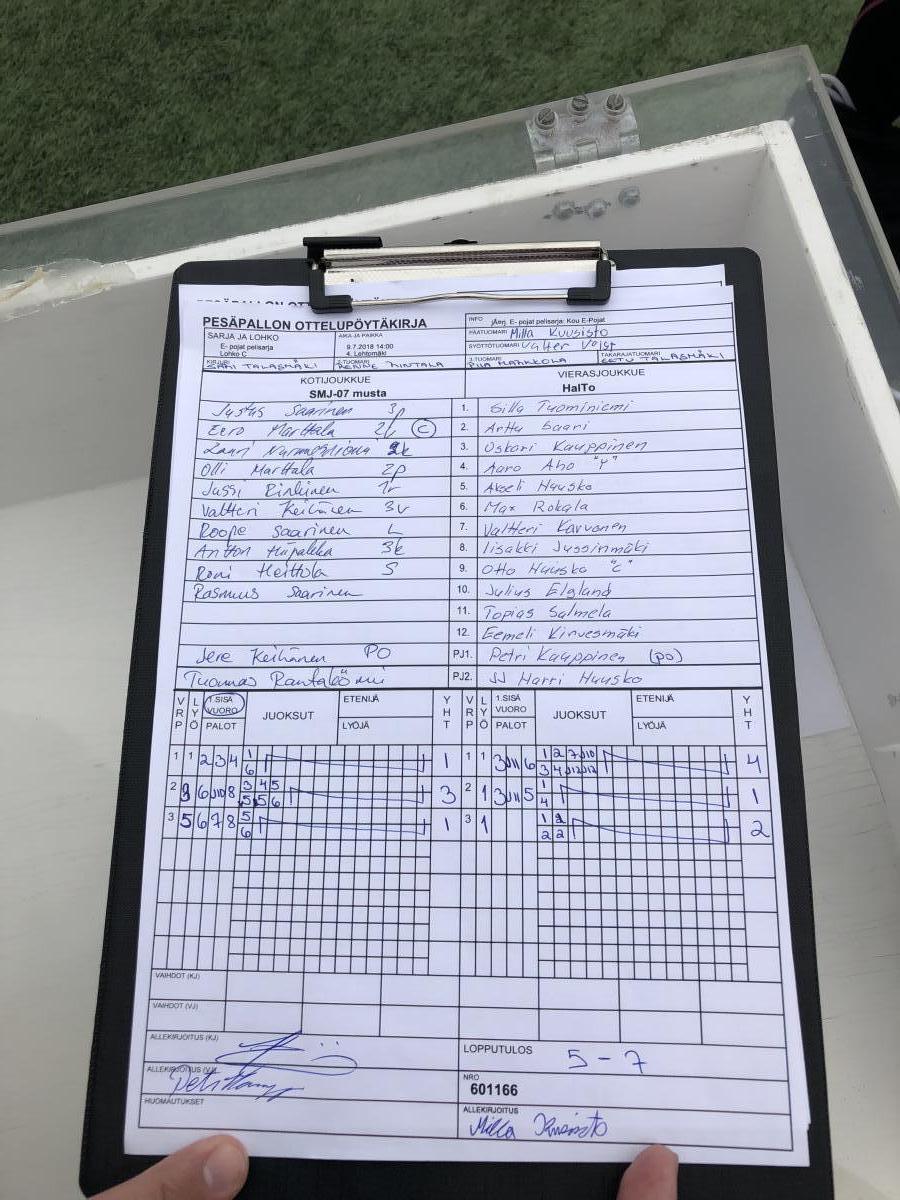 PESÄPALLON OTTELUPÖYTÄKIRJA
SARJA JA LOHKO
E- pojat pelisarja
Lohko C
AIKA JA PAIKKA
9.7.2018 14:00
4. Lehtomäki
INFO jÄrj. E- pojat pelisarja: Kou E-Pojat
PÄÄTUOMARI Milla Kuusisto
SYÖTTÖTUOMARI Valter Voist
KIRJURI SARI TALASMÄKI
2-TUOMARI HINTALA
3-TUOMARI PIIA MARKKOLA
TAKARAJATUOMARI EETU TALASMÄKI
KOTIJOUKKUE
SMJ-07 musta
VIERASJOUKKUE
HalTo
Justus Saarinen 3p
1. Silla Tuominiemi
Eero Marttala C
2. Arttu Saari
Lauri
3. Oskari Kauppinen
Olli Marttala 2p
4. Aaro Aho "Y"
Jussi
5. Akseli Huusko
Valtteri Keihänen 3v
6. Max Rokala
Roope Saarinen L
7. Valtteri Karvonen
Antton 3k
8. Iisakki Jussinmäki
Roni Heittola S
9. Otto Huusko "C"
Rasmus Saarinen
10. Julius Elgland
11. Topias Salmela
12. Eemeli Kirvesmäki
Jere Keihänen PO
PJ1. Petri Kauppinen (po)
Tuomas Rantalöömi
PJ2. JJ Harri Huusko
VRP LYÖ 1.SISÄ VUORO PALOT JUOKSUT ETENIJÄ LYÖJÄ YHT
VRP LYÖ 1.SISÄ VUORO PALOT JUOKSUT ETENIJÄ LYÖJÄ YHT
1 1 2 3 4 1 6 1
1 1 3 J11 6 1 2 7 J10 3 4 J12 J12 4
2 3 6 J10 8 3 4 5 5 5 6 3
2 1 3 J11 5 1 4 1
3 5 6 7 8 5 6 1
3 1 1 2 2 2 2
VAIHDOT (KJ)
VAIHDOT (VJ)
ALLEKIRJOITUS (KJ)
LOPPUTULOS 5 - 7
ALLEKIRJOITUS (VJ)
NRO
601166
HUOMAUTUKSET
ALLEKIRJOITUS
Milla Kuusisto